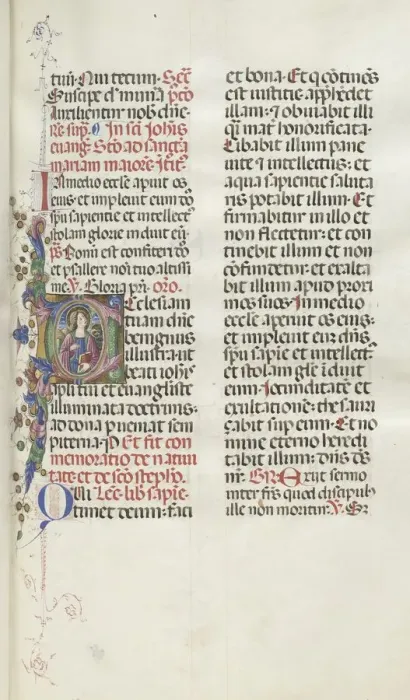 tuū. Qui tecum. Secr̄
Suscipe dn̄e munera pr̄o
Auxilientur nob dn̄e
Re sup̄. O In sci Johis
euang. Stō ad sanctā
mariam maiorē. Jtr̄.
In medio eccl̄e aperuit os
eius: et impleuit eum dn̄s
spū sapientie et intellect᷒
stolam glorie induit eū.
p̄s Bonū est confiteri dn̄o
et psallere noī tuo altissi
me. V. Gloria pr̄i. oro.
Ecclesiam
tuam dn̄e
benignus
illustra: ut
beati iohīs
apli tui et euangeliste
illuminata doctrinis:
ad dona pueniat sem
piterna. p. Et fit con
memoratio de natiui
tate et de scō stepho.
Lēc. lib sapīe.
Qui timet deum: faci
et bona. Et q cōtinēs
est iustitie apprehēdet
illam: ⁊ obuiabit illi
q̄ mat̄ honorificata.
Cibabit illum pane
uite ⁊ intellectus: et
aqua sapientie saluta
ris potabit illum. Et
firmabitur in illo et
non flectetur: et con
tinebit illum et non
cōfundetur: et exalta
bit illum apud proxi
mos suos. In medio
eccl̄e aperuit os eius:
et impleuit eū dn̄s
spū sapīe et intellect᷒:
et stolam gl̄e īduit
eum. Jocunditatē et
exultationē: thesauri
çabit sup eum. Et no
mine eterno heredi
tabit illum: dn̄s dē
nr̄. GR. Exijt sermo
inter frēs quod discipulus
ille non moritur. V. S